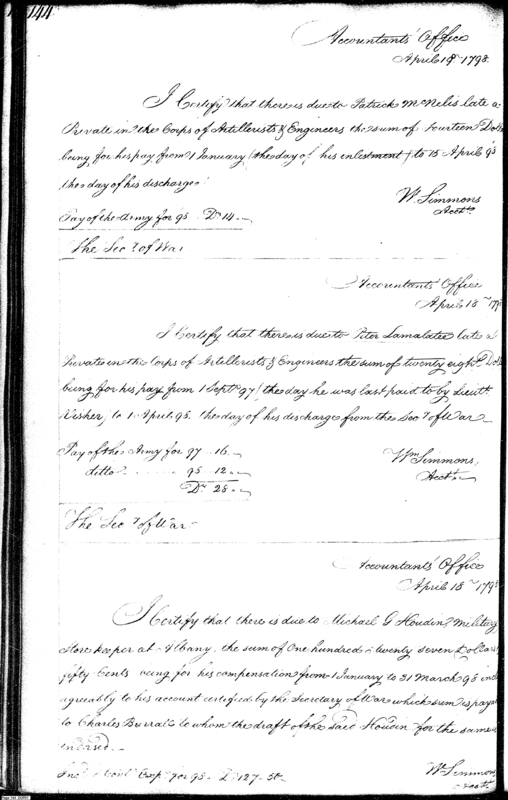 144
Accountants Office
April 18th 1798.
I Certify that there is due to Patrick McNelis late a
Private in the Corps of Artillerists & Engineers the sum of fourteen Dolls
being for his pay from 1 January (the day of his enlistment) to 15 April 98
the day of his discharge
Wm Simmons
Acctt
Pay of the Army for 98 Ds 14.-
The Secy of War
Accountants Office
April 18th 1798
I Certify that there is due to Peter Lamalatee late a
Private in the Corps of Artillerists & Engineers the sum of twenty eight Dolls
being for his pay from 1 Septr 97 (the day he was last paid to by Lieutt
Visher, to 1 April 98. the day of his discharge from the Secy of War
Pay of the Army for 97 16.-
ditto 98 12.-
Ds 28.-
Wm Simmons,
Acctt
The Secy of War
Accountants Office
April 18th 1798
I Certify that there is due to Michael G Houdin Military
Store keeper at Albany, the sum of One hundred & twenty seven Dollars
fifty Cents being for his compensation from 1 January to 31 March 98 incl
agreeably to his account certified by the Secretary of War which sum is payable
to Charles Burrall to whom the draft of the said Houdin for the same is
endorsed.
Indt & Cont Exps for 98 - Ds 127-50
Wm Simmons
Acctt